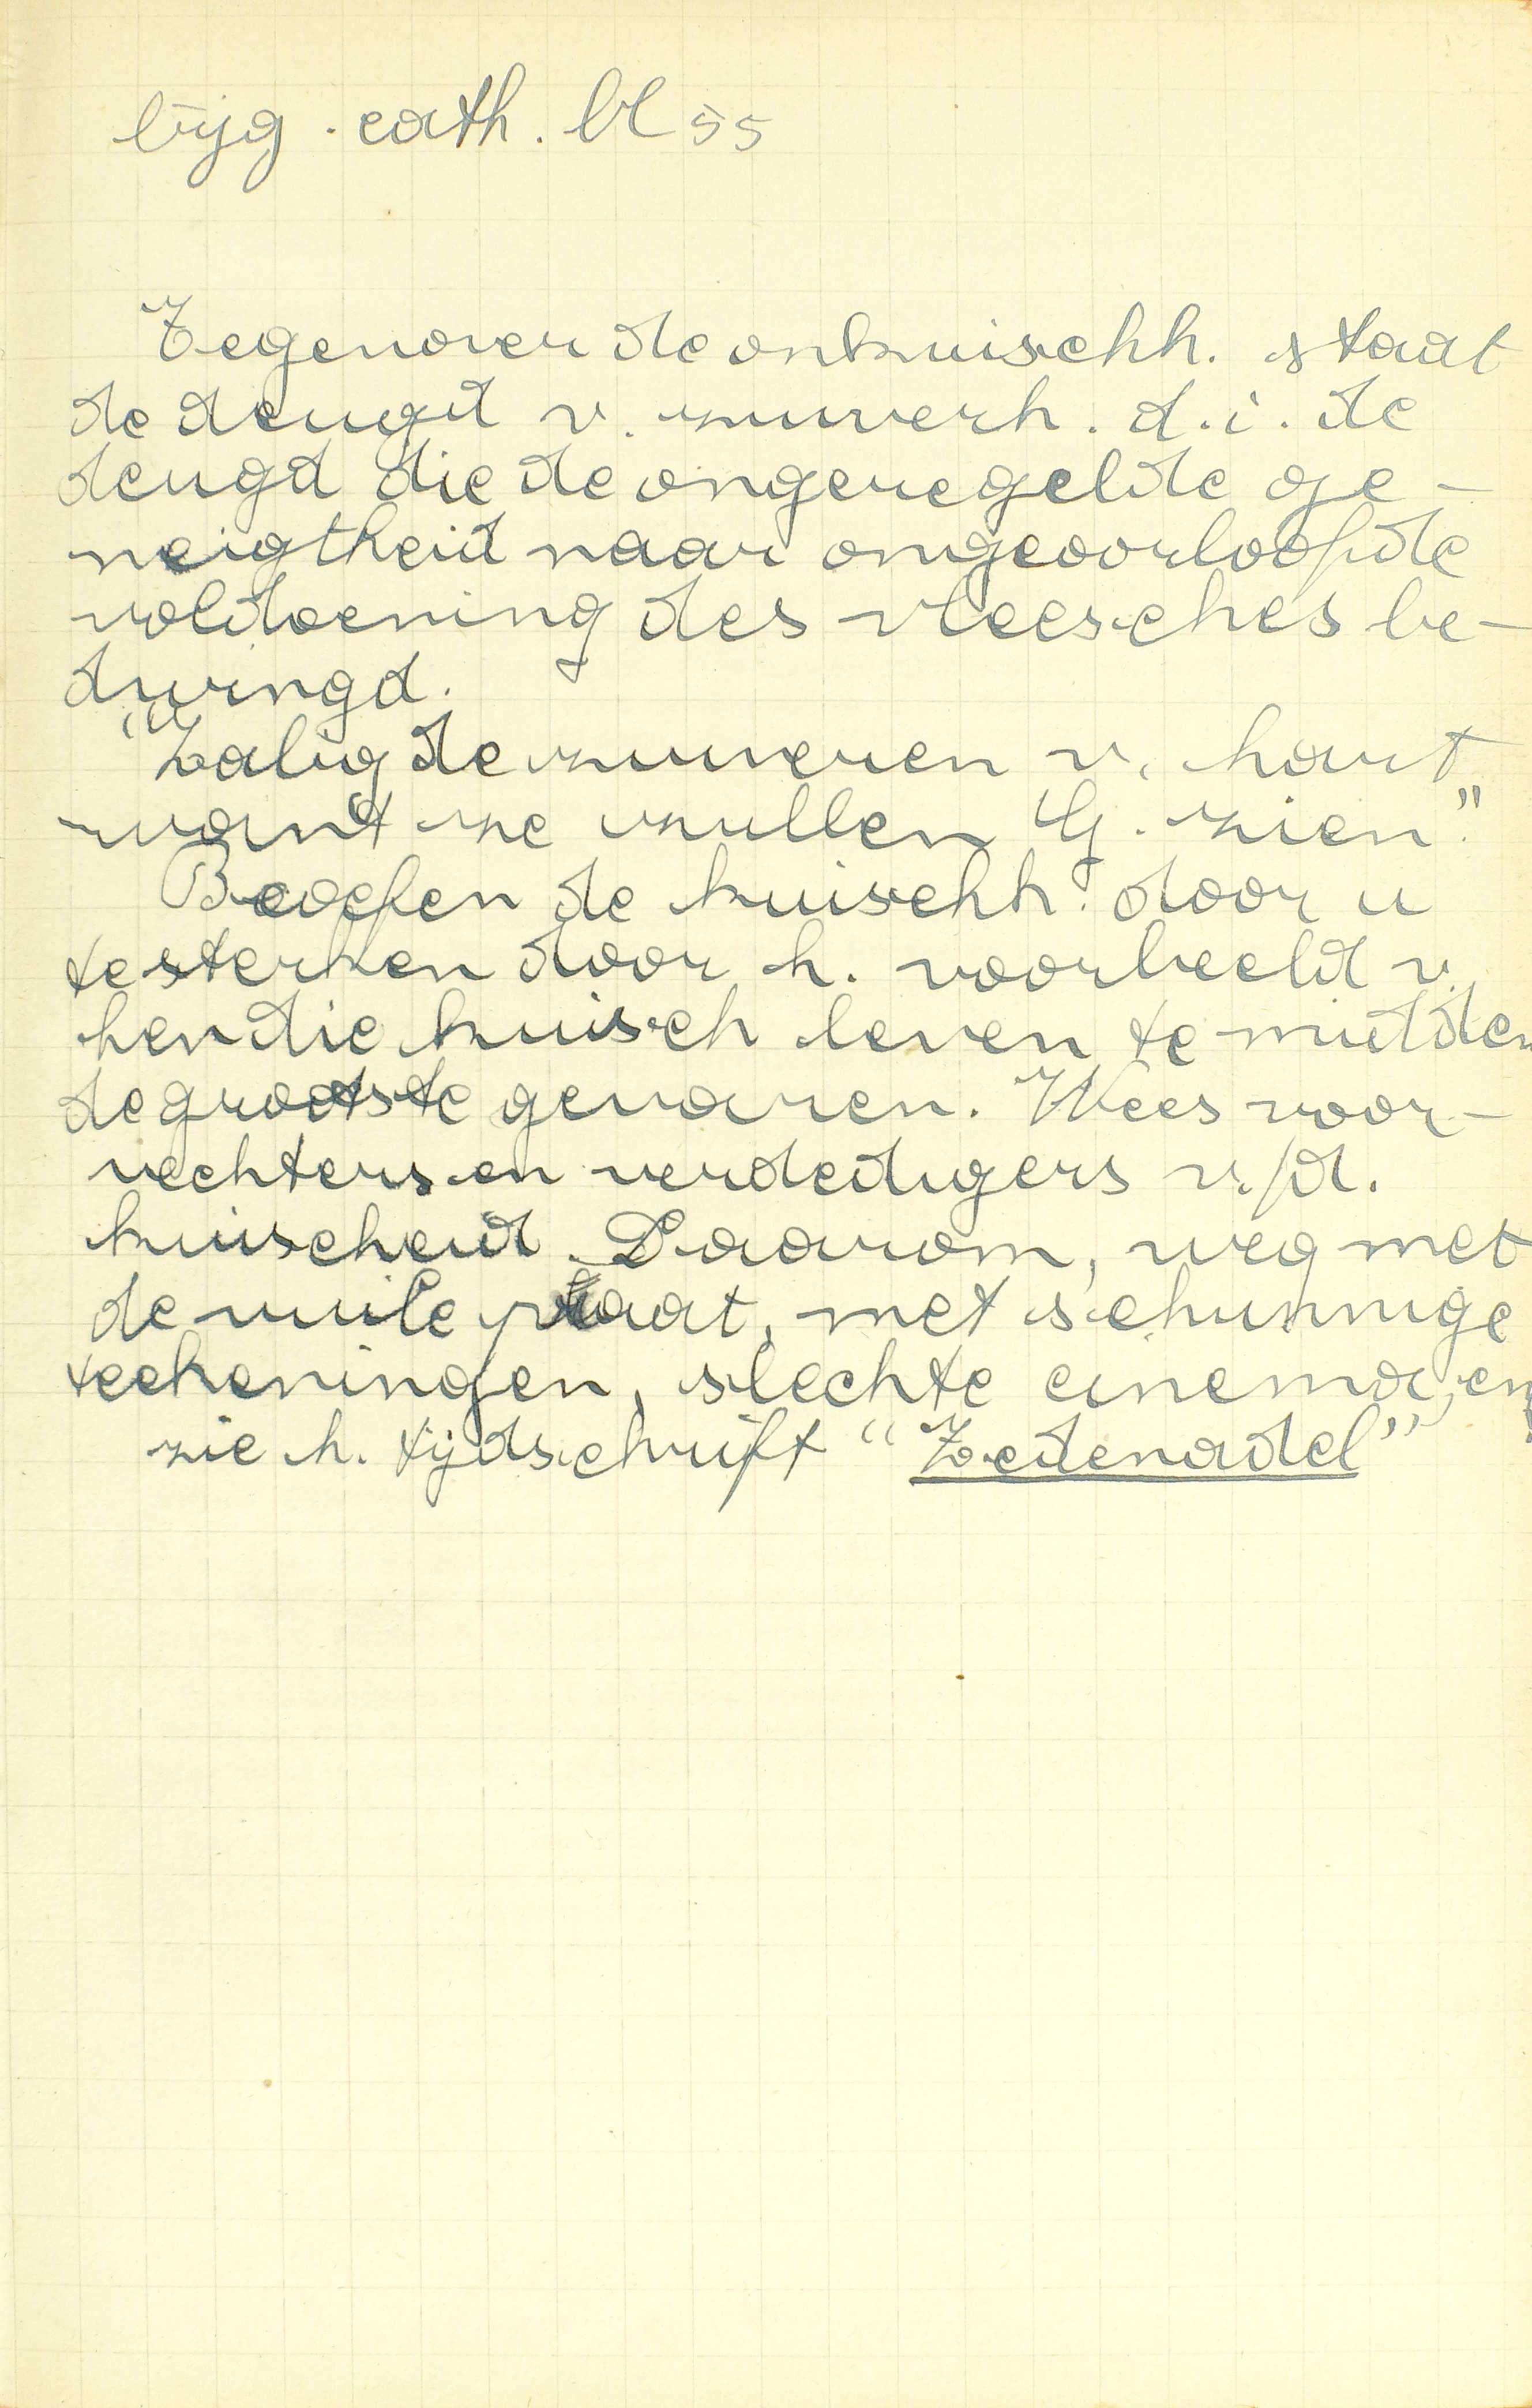 bijg. cath. bl 55
Tegenover de onkuischh. staat
de deugd v. zuiverh. d.i. de
deugd die de ongeregelde ge-
neigtheid naar ongeoorloofde
voldoening des vleesches be-
dwingd.
"Zalig de zuiveren v. hart
want ze zullen G. zien".
Beoefen de kuischh. door u
te sterken door h. voorbeeld v.
hen die kuisch leven te midden
de grootste gevaren. Wees voor-
vechters en verdedigers v/d.
kuischeid. Daarom, weg met
de vuile praat, met schunnige
teekeningen, slechte cinema, en
zie h. tijdschrift "Zedenadel"